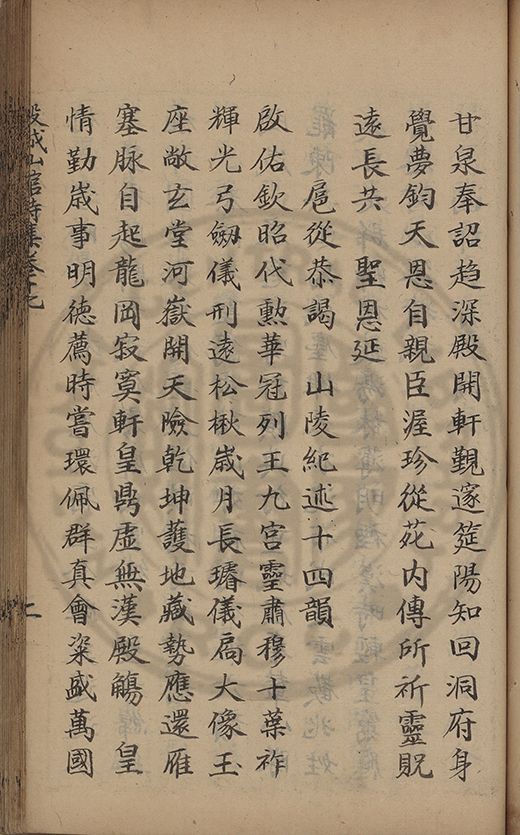 甘泉奉詔趨深殿開軒覲邃筵陽知回洞府身
覺夢鈞天恩自親臣渥珍從苑内傳所祈靈貺
遠長共 聖恩延
扈從恭謁 山陵紀述十四韻
啟佑欽昭代勲華冠列王九宫靈肅穆十葉祚
輝光弓劔儀刑遠松楸歲月長璿儀扃大像玉
座敞玄堂河嶽開天險乾坤護地藏勢應還雁
塞脉自起龍岡寂寞軒皇鼎虛無漢殿觴 皇
情勤歲事明德薦時嘗環佩群真會粢盛萬國
穀城山館詩集卷十九